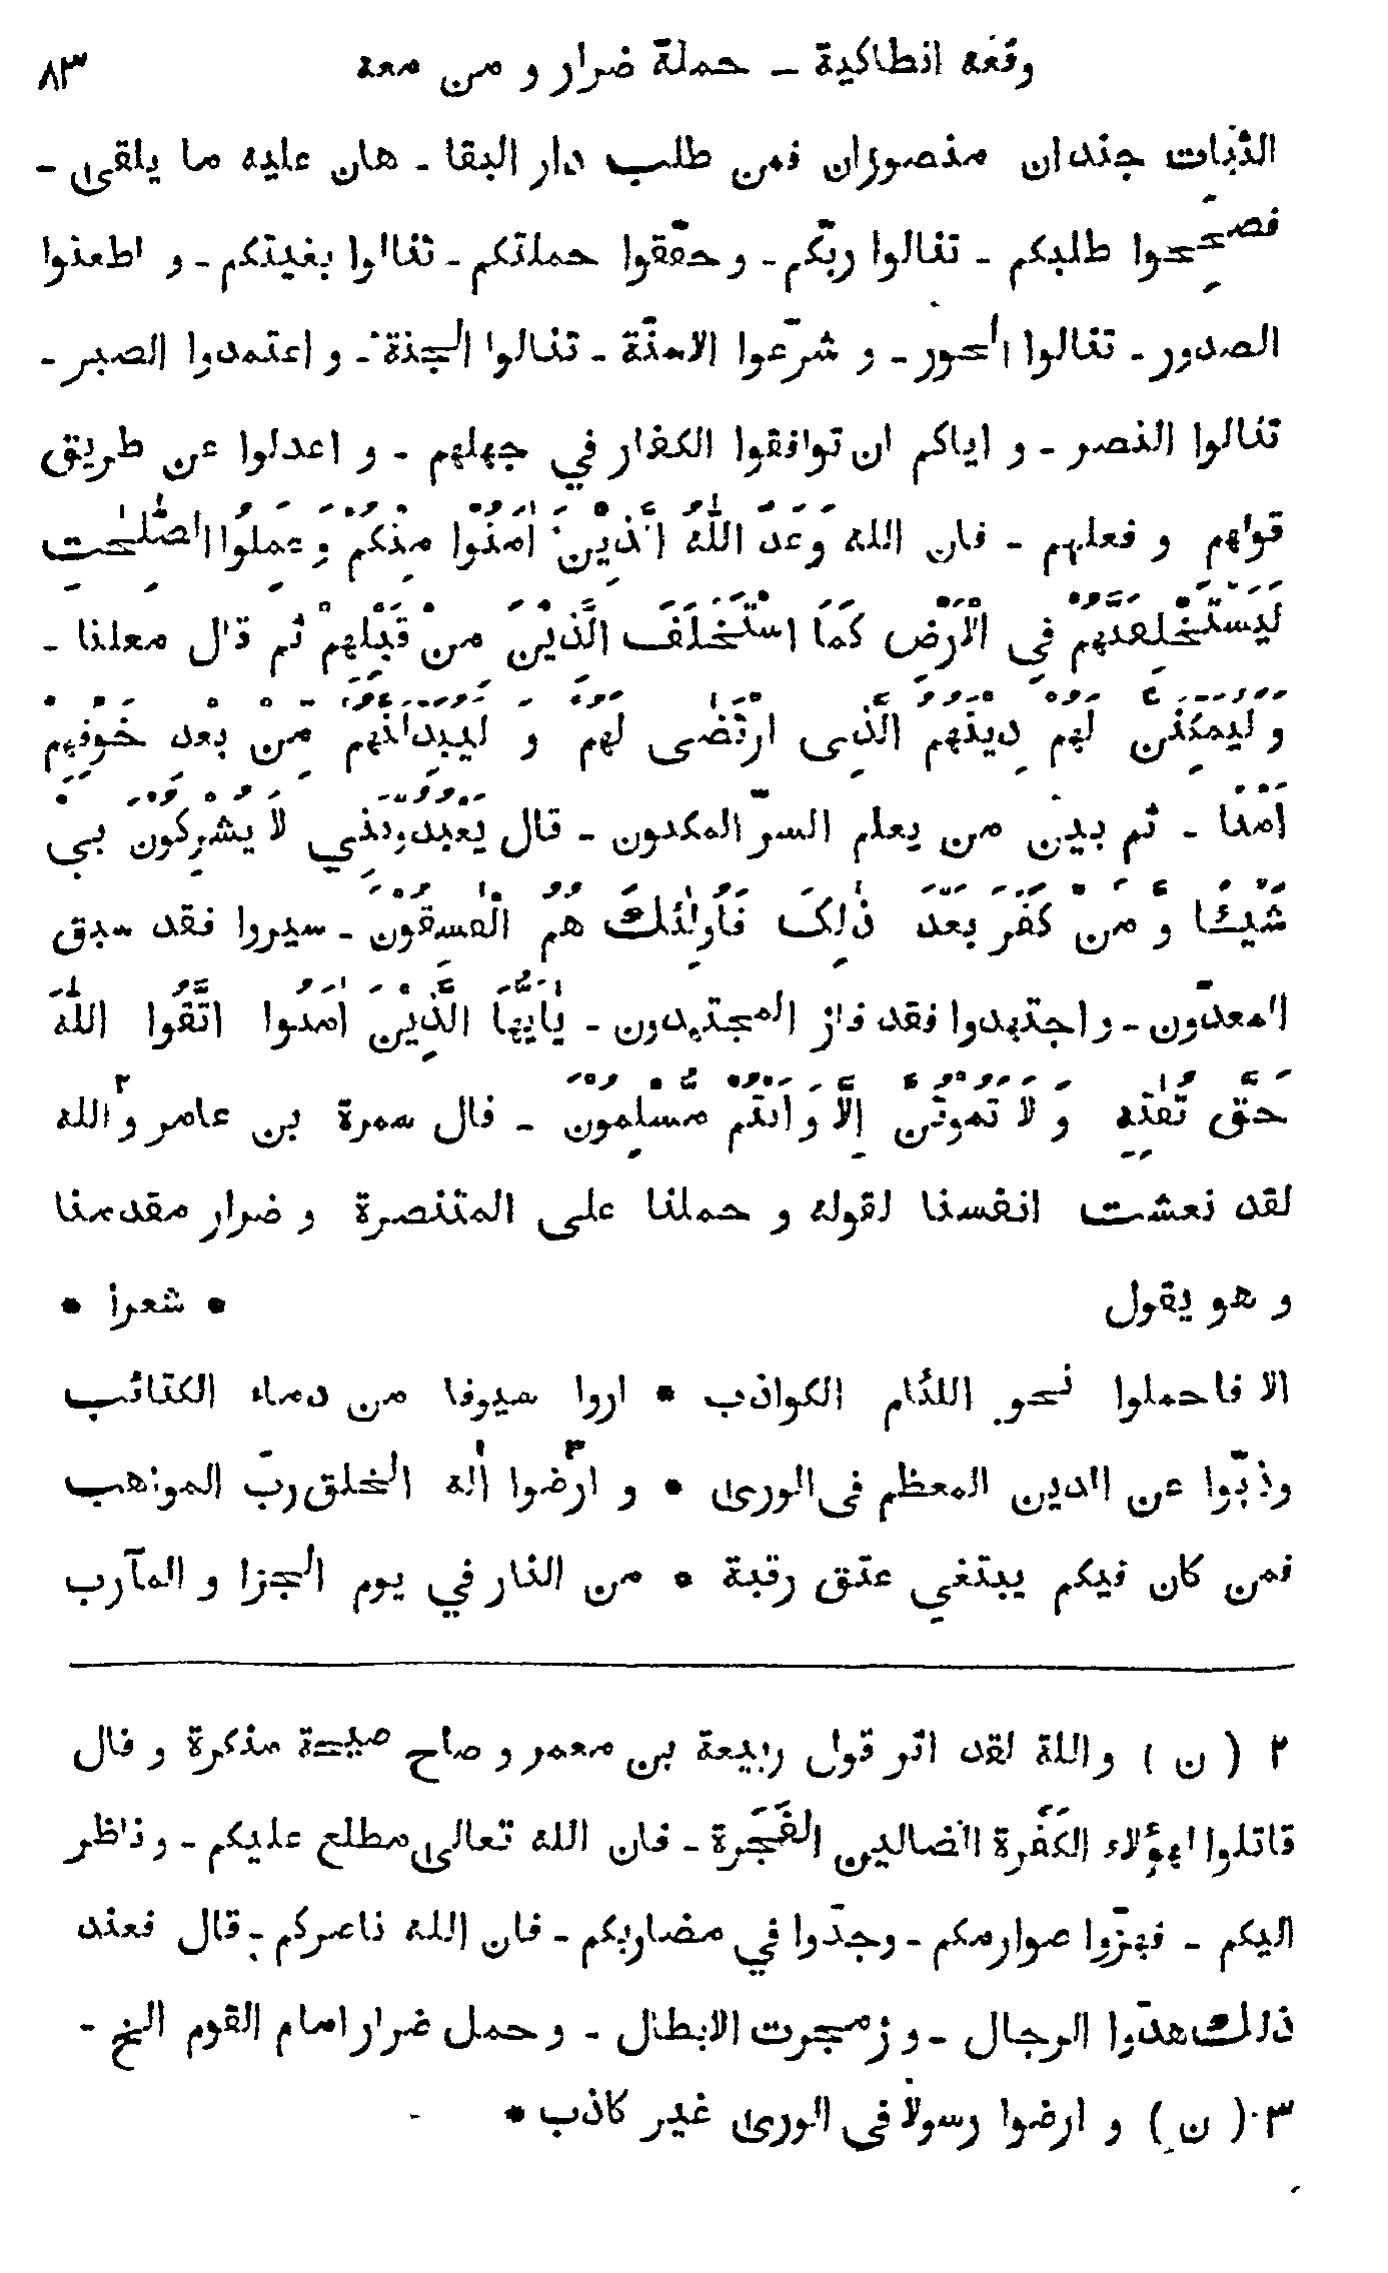 وقعه انطاكية ــ حملة ضرار و من معه ٨٣
الثبات جندان منصوران فمن طلب دار البقا ـ هان عليه ما يلقى ـ
فصحّحوا طلبكم ـ تنالوا ربّكم ـ و حقّقوا حملتكم ـ تنالوا بغيتكم ـ و اطعنوا
الصدور ـ تنالوا الحور ـ و شرّعوا الاسنّة ـ تنالوا الجنة ـ و اعتمدوا الصبر ـ
تنالوا النصر ـ و اياكم ان توافقوا الكفار في جهلهم ـ و اعدلوا عن طريق
قولهم و فعلهم ـ فان الله وَعَدَ اللّٰهُ الَّذِيْنَ اٰمَنُوْا مِنْكُمْ وَ عَمِلُوا الصّٰلِحٰتِ
لَيَسْتَخْلِفَنَّهُمْ فِي الْاَرْضِ كَمَا اسْتَخْلَفَ الَّذِيْنَ مِنْ قَبْلِهِمْ ثم قال معلنا ـ
وَ لَيُمَكِّنَنَّ لَهُمْ دِيْنَهُمُ الَّذِى ارْتَضٰى لَهُمْ وَ لَيُبَدِّلَنَّهُمْ مِّنْ بَعْدِ خَوْفِهِمْ
اَمْنًا ـ ثم بيّن من يعلم السرّ المكنون ـ قال يَعْبُدُوْنَنِي لَا يُشْرِكُوْنَ بِيْ
شَيْئًا وَ مَنْ كَفَرَ بَعْدَ ذٰلِكَ فَاُولٰئِكَ هُمُ الْفٰسِقُوْنَ ـ سيروا فقد سبق
المعدّون ـ و اجتهدوا فقد فاز المجتهدون ـ يٰاَيُّهَا الَّذِيْنَ اٰمَنُوا اتَّقُوا اللّٰهَ
حَقَّ تُقٰتِهِ وَ لَا تَمُوْتُنَّ اِلَّا وَ اَنْتُمْ مُّسْلِمُوْنَ ـ قال سمرة بن عامر و٢الله
لقد نعشت انفسنا لقوله و حملنا على المتنصرة و ضرار مقدمنا
و هو يقول • شعرا •
الا فاحملوا نحو اللئام الكواذب • اروا سيوفا من دماء الكتائب
وذبّوا عن الدين المعظم فى الورى • و ارضوا٣ اله الخلق ربّ المواهب
فمن كان فيكم يبتغي عتق رقبة • من النار في يوم الجزا و المآرب
٢ ( ن ) و اللة لقد اثر قول ربيعة بن معمر و صاح صيحة منكرة و قال
قاتلوا لهؤلاء الكَفَرة الضالين الفَجَرة ـ فان الله تعالى مطلع عليكم ـ و ناظر
اليكم ـ فهزّوا صوارمكم ـ وجدّوا في مضاربكم ـ فان الله ناصركم ـ قال فعند
ذلك هدّوا الرجال ـ و زمجرت الابطال ـ و حمل ضرار امام القوم الخ ـ
٣ ( ن ) و ارضوا رسولا فى الورى غير كاذب •